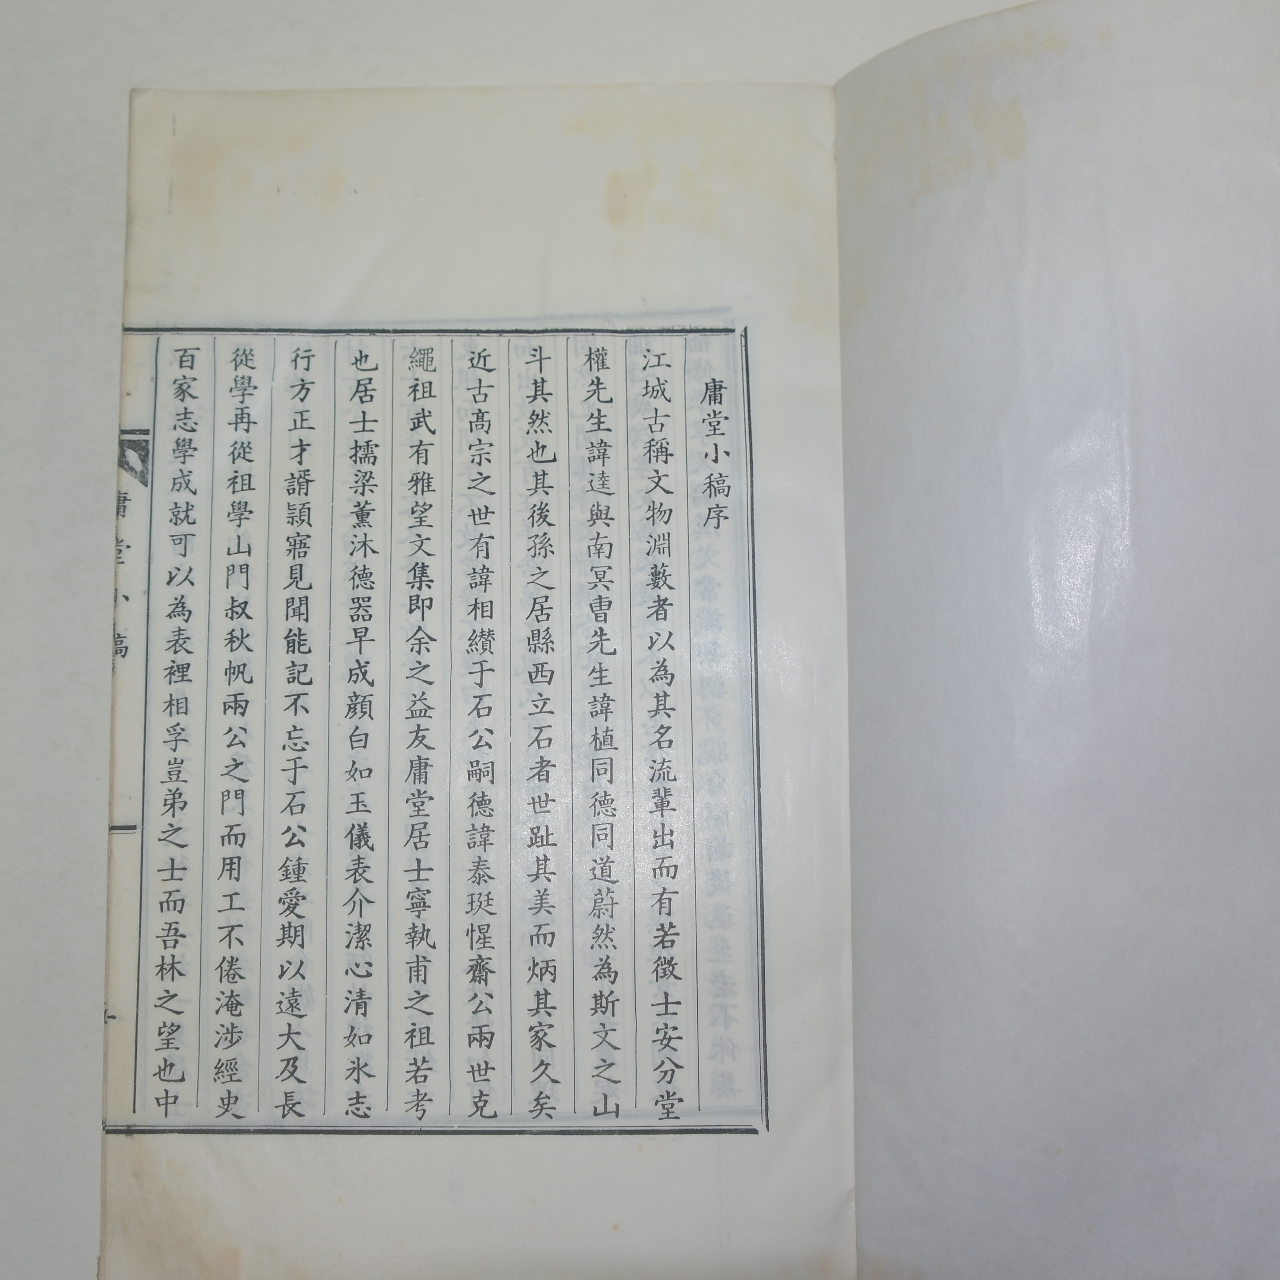 庸堂小稿序
江城古稱文物淵藪者以為其名流輩出而有若徵士安分堂
權先生諱逵與南冥曺先生諱植同德同道蔚然為斯文之山
斗其然也其後孫之居縣西立石者世趾其美而炳其家久矣
近古高宗之世有諱相纘于石公嗣德諱泰珽惺齋公兩世克
繩祖武有雅望文集即余之益友庸堂居士寧執甫之祖若考
也居士擩梁薰沐德器早成顔白如玉儀表介潔心清如氷志
行方正才諝潁寤見聞能記不忘于石公鍾愛期以遠大及長
從學再從祖學山門叔秋帆兩公之門而用工不倦淹涉經史
百家志學成就可以為表裡相孚豈弟之士而吾林之望也中
庸堂小稿